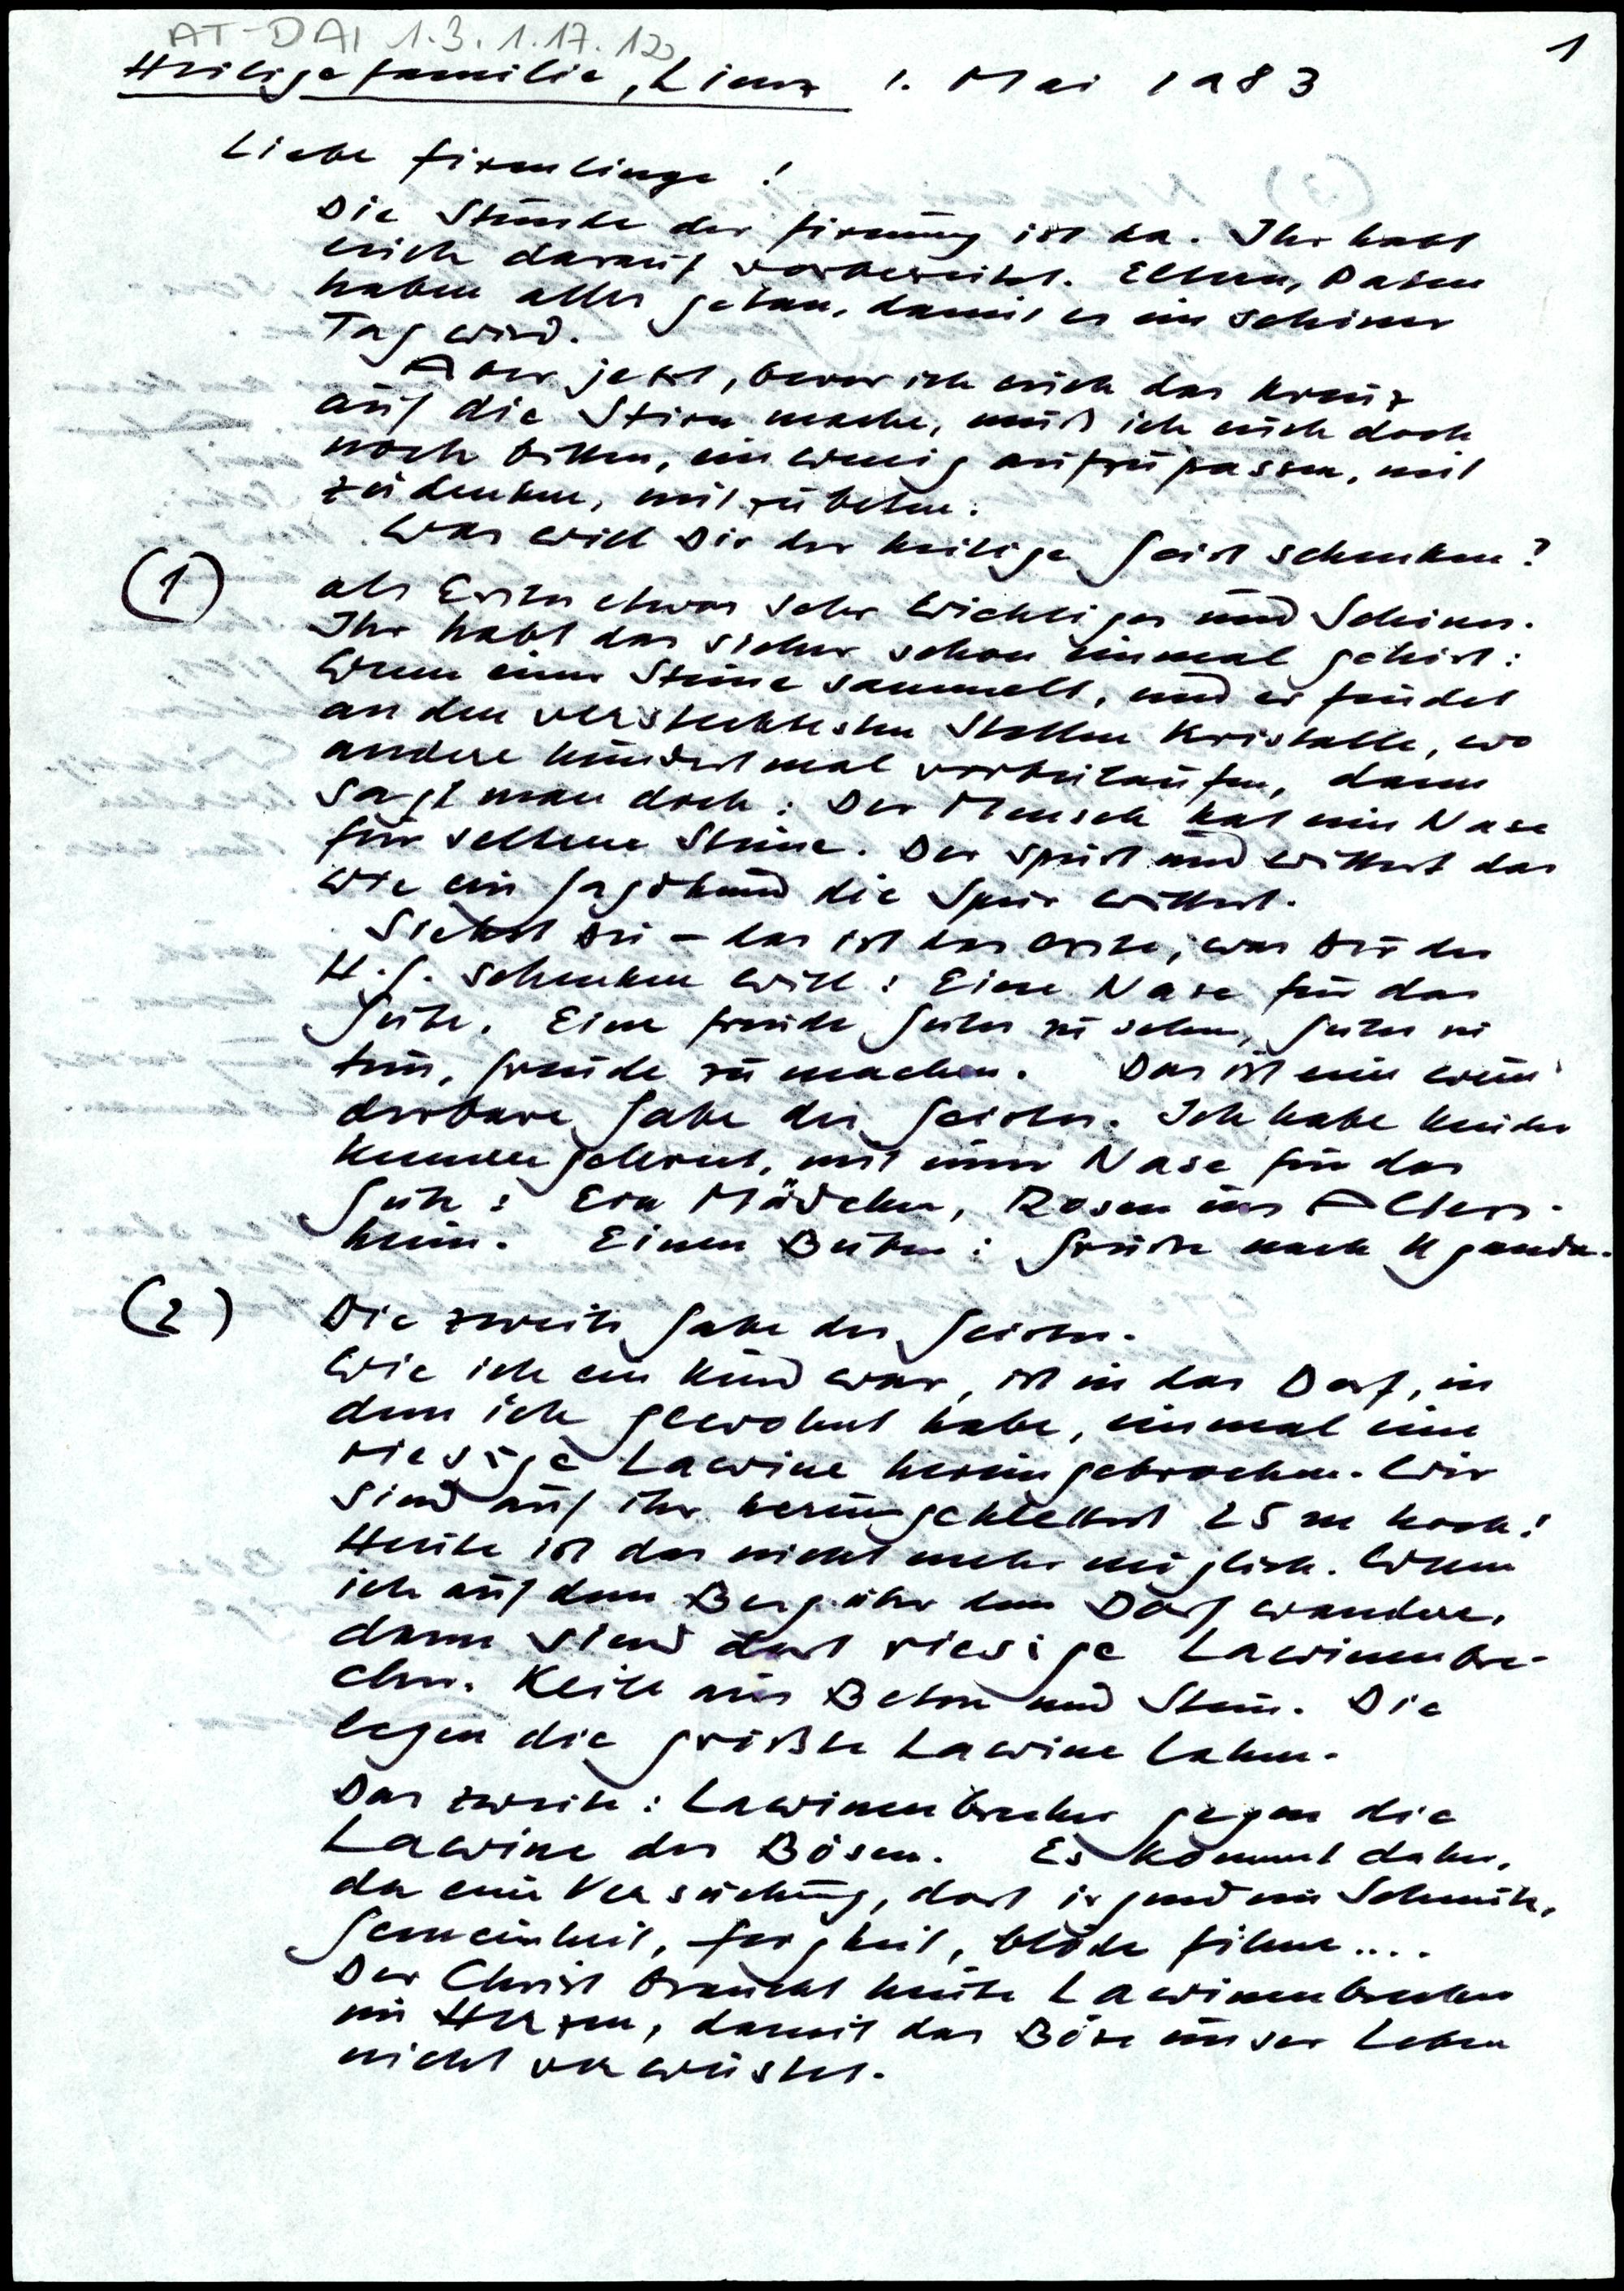 AT-DAI 1.3.1.17.12
1
Heilige Familie, Lienz 1. Mai 1983
Liebe Firmlinge!
Die Stunde der Firmung ist da. Ihr habt
euch darauf vorbereitet. Eltern, Paten
haben alles getan, damit es ein schöner
Tag wird.
Aber jetzt, bevor ich euch das Kreuz
auf die Stirn mache, muß ich euch doch
noch bitten, ein wenig aufzupassen, mit
zudenken, mitzubeten.
Was will Dir der heilige Geist schenken?
(1)
als Erstes etwas sehr Wichtiges und Schönes.
Ihr habt das sicher schon einmal gehört:
Wenn einer Steine sammelt, und er findet
an den verstecktesten Stellen Kristalle, wo
andere hundertmal vorbeilaufen, dann
sagt man doch: Der Mensch hat ein Nase
für seltene Steine. Der spürt und wittert das
wie ein Jagdhund die Spur wittert.
Siehst Du – das ist das erste, was Dir der
H.G. schenken will: Eine Nase für das
Gute. Eine Freude Gutes zu sehen, Gutes zu
tun, Freude zu machen. Das ist eine wun
derbare Gabe des Geistes. Ich habe Kinder
kennengelernt, mit einer Nase für das
Gute: Ein Mädchen, Rosen ins Alters-
heim. Einen Buben: Grüße nach Uganda.
(2)
Die zweite Gabe des Geistes.
Wie ich ein Kind war, ist in das Dorf, in
dem ich gewohnt habe, einmal eine
riesige Lawine hereingebrochen. Wir
sind auf ihr herumgeklettert 25 m hoch!
Heute ist das nicht mehr möglich. Wenn
ich auf dem Berg über dem Dorf wandere,
dann sind dort riesige Lawinenbre-
cher. Keile aus Beton und Stein. Die
legen die größte Lawine lahm.
Das zweite: Lawinenbrecher gegen die
Lawine des Bösen. Es kommt daher,
da eine Versuchung, dort irgend ein Schmutz,
Gemeinheit, Feigheit, blöde Filme....
Der Christ braucht heute Lawinenbrecher
im Herzen, damit das Böse unser Leben
nicht verwüstet.